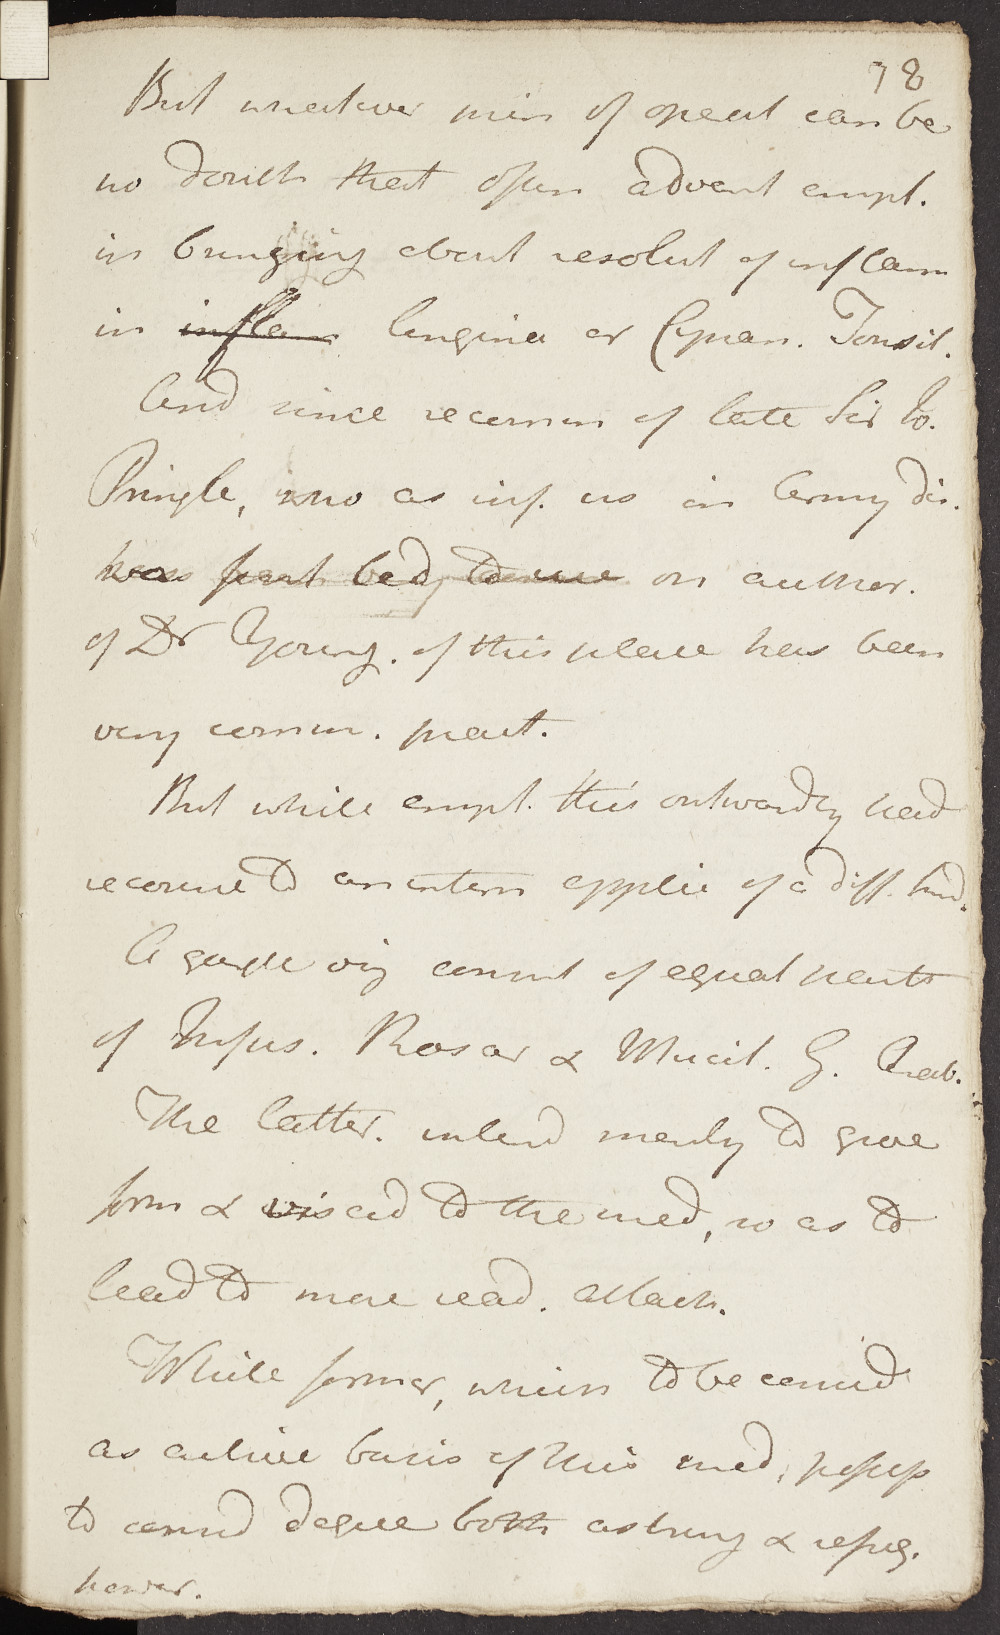 78
But whatever prin of operat can be
no doubt that often advant empl.
in bringing about resolut of inflam
in inflam Angina or Cynan. Tonsil.
And since recomm of late Sir Jo.
Pringle, who as inf. us in Army dis.
has part on author.
of Dr Young. of this place has been
very comm. pract.
But while empl. this outwardly had
recourse to an intern applic of a diff. kind.
A gargle viz consist of equal parts
of Infus. Rosar & Mucil. G. Arab.
The latter. intend merely to give
form & viscid to the med, so as to
lead to more read. attach.
While former, which to be consid
as active basis of this med, possess
to consid degree both astring & refrig.
power.